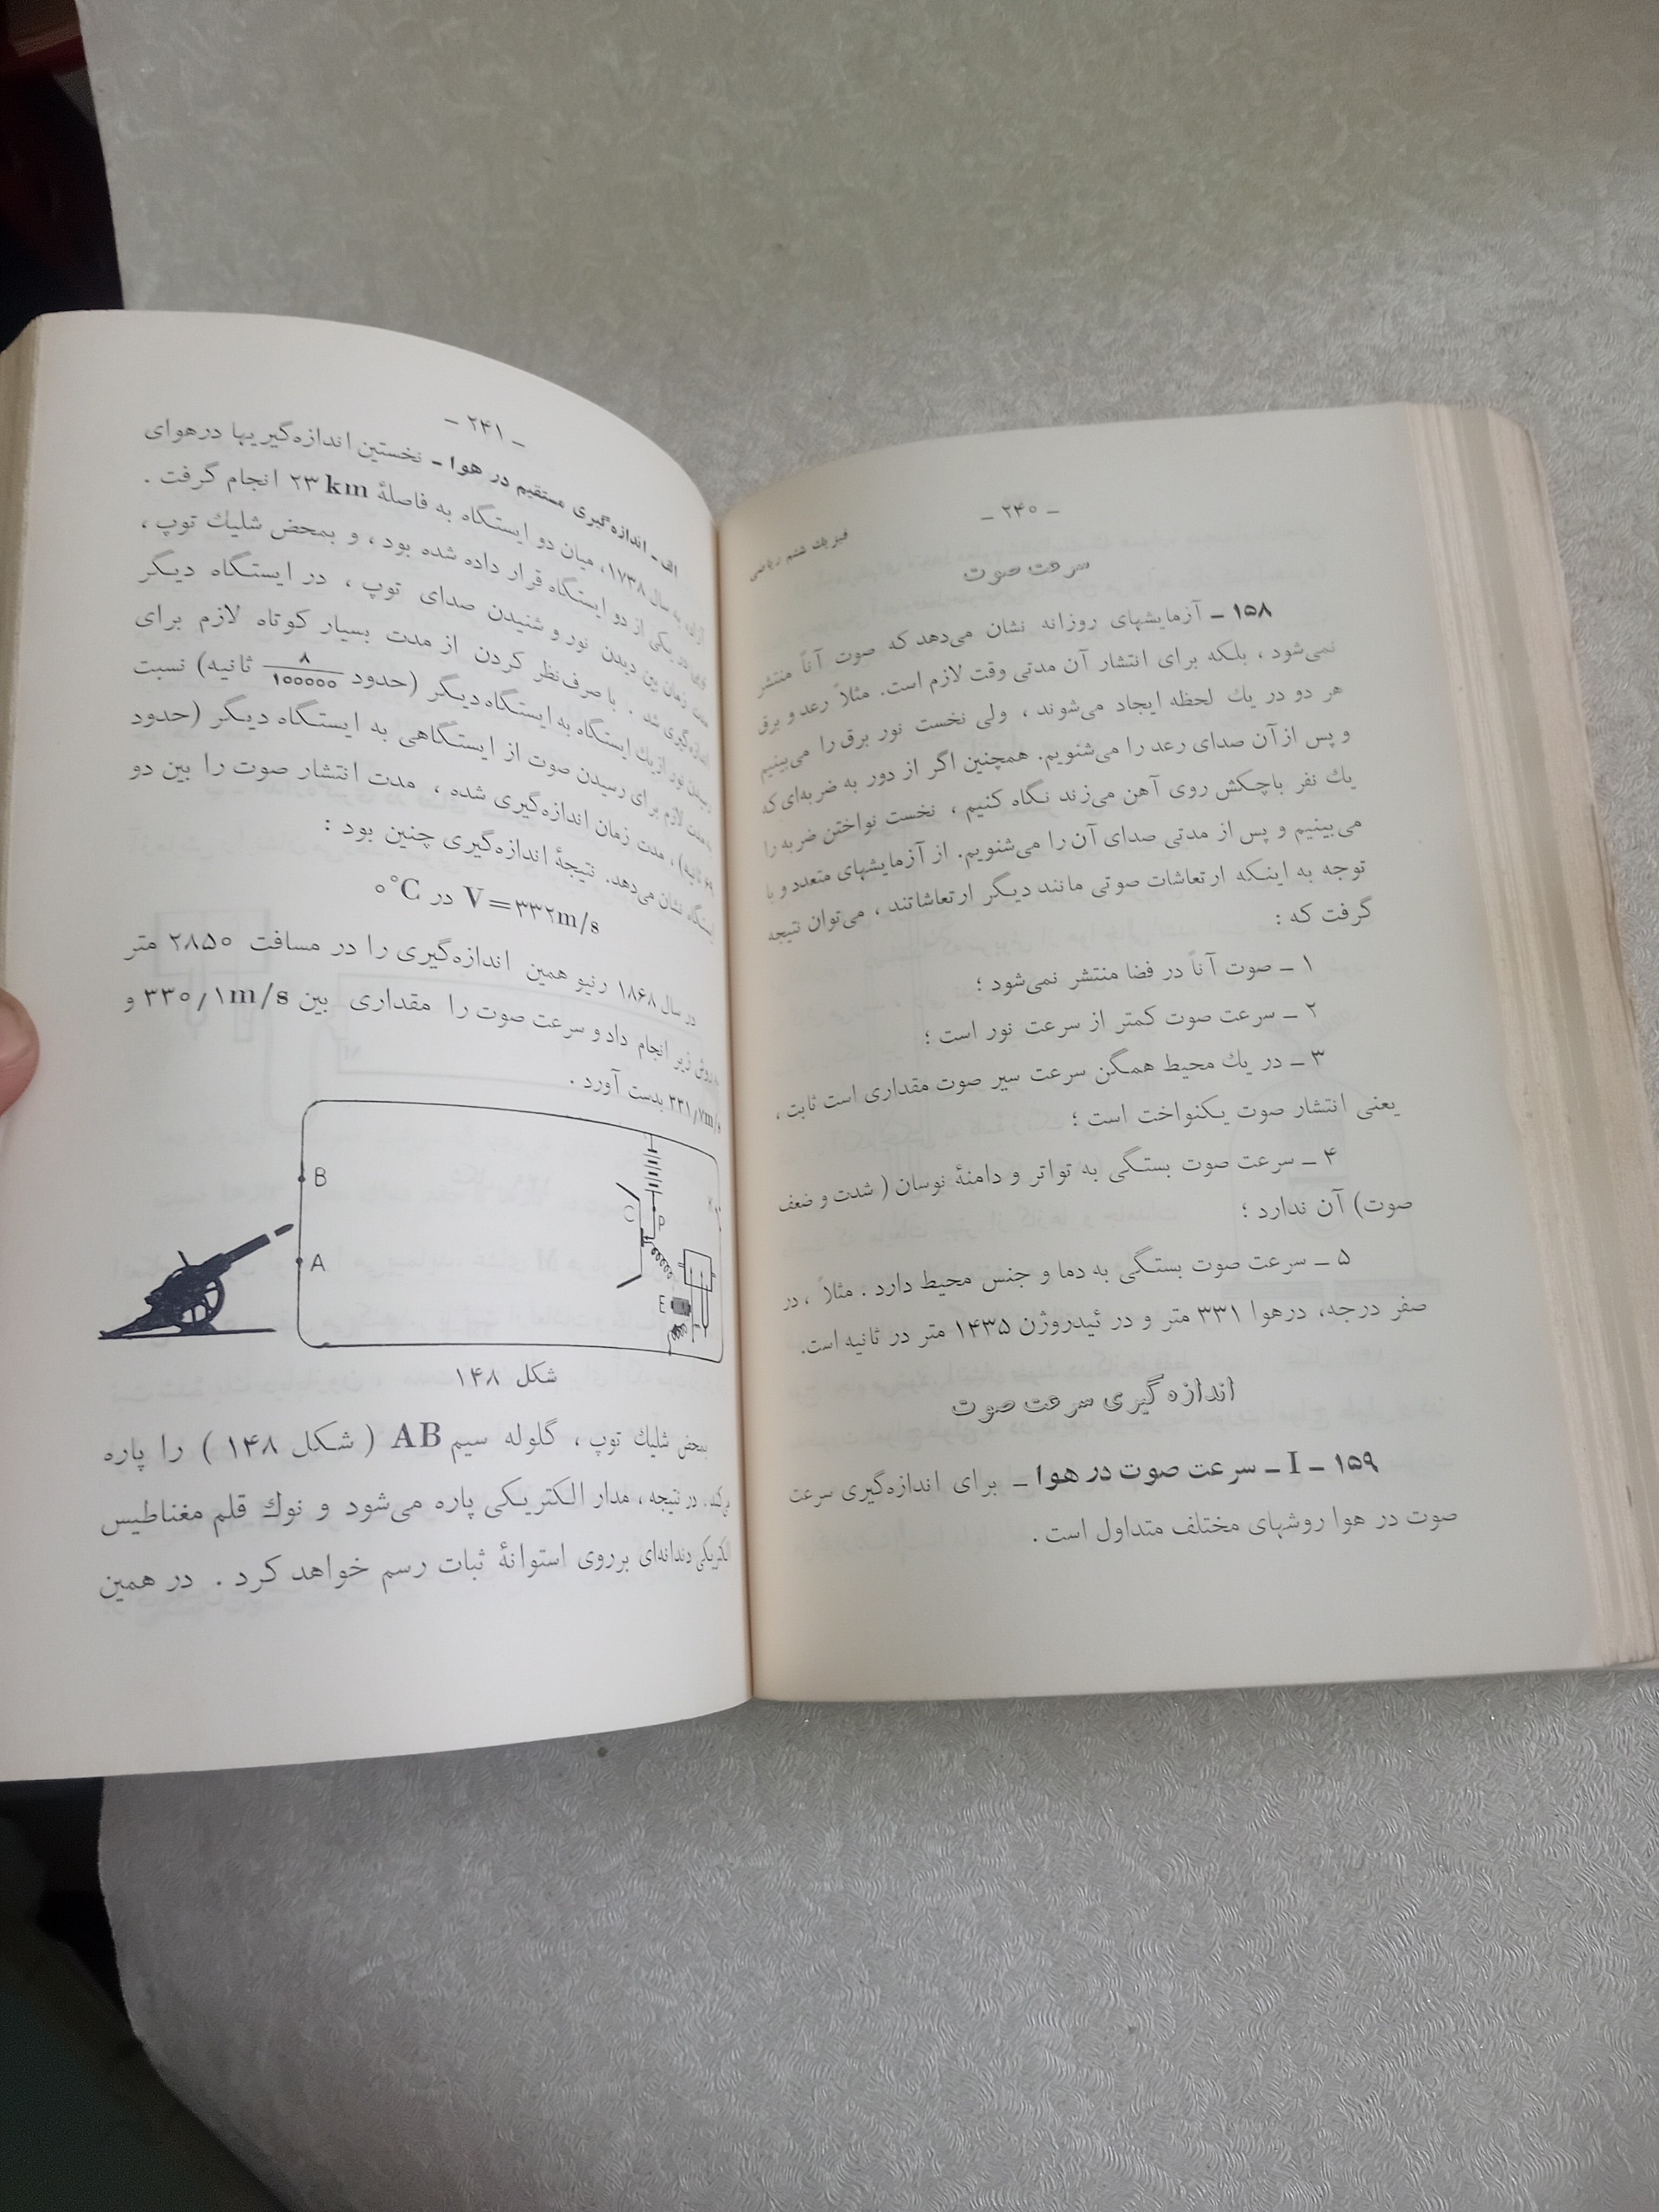 ـ ۲۴۰ ـ
فیزیك ششم ریاضی
سرعت صوت
۱۵۸ ـ آزمایشهای روزانه نشان می‌دهد که صوت آناً منتشر
نمی‌شود ، بلکه برای انتشار آن مدتی وقت لازم است. مثلاً رعد و برق
هر دو در یك لحظه ایجاد می‌شوند ، ولی نخست نور برق را می‌بینیم
و پس از آن صدای رعد را می‌شنویم. همچنین اگر از دور به ضربه‌ای که
یك نفر باچکش روی آهن می‌زند نگاه کنیم ، نخست نواختن ضربه را
می‌بینیم و پس از مدتی صدای آن را می‌شنویم. از آزمایشهای متعدد و با
توجه به اینکه ارتعاشات صوتی مانند دیگر ارتعاشاتند ، می‌توان نتیجه
گرفت که :
۱ ـ صوت آناً در فضا منتشر نمی‌شود ؛
۲ ـ سرعت صوت کمتر از سرعت نور است ؛
۳ ـ در یك محیط همگن سرعت سیر صوت مقداری است ثابت ،
یعنی انتشار صوت یکنواخت است ؛
۴ ـ سرعت صوت بستگی به تواتر و دامنهٔ نوسان ( شدت و ضعف
صوت) آن ندارد ؛
۵ ـ سرعت صوت بستگی به دما و جنس محیط دارد . مثلاً ، در
صفر درجه، درهوا ۳۳۱ متر و در ئیدروژن ۱۴۳۵ متر در ثانیه است.
اندازه گیری سرعت صوت
۱۵۹ ـ I ـ سرعت صوت در هوا ـ برای اندازه‌گیری سرعت
صوت در هوا روشهای مختلف متداول است .
ـ ۲۴۱ ـ
الف ـ اندازه‌گیری مستقیم در هوا ـ نخستین اندازه‌گیریها درهوای
آزاد به سال ۱۷۳۸، میان دو ایستگاه به فاصلهٔ ۲۳ km انجام گرفت .
در یکی از دو ایستگاه قرار داده شده بود ، و بمحض شلیك توپ ،
مدت زمان بین دیدن نور و شنیدن صدای توپ ، در ایستگاه دیگر
اندازه‌گیری شد . با صرف‌نظر کردن از مدت بسیار کوتاه لازم برای
رسیدن نور ازیك ایستگاه به ایستگاه دیگر (حدود ۸/۱۰۰۰۰۰ ثانیه) نسبت
مدت لازم برای رسیدن صوت از ایستگاهی به ایستگاه دیگر (حدود
ثانیه) ، مدت زمان اندازه‌گیری شده ، مدت انتشار صوت را بین دو
ایستگاه نشان می‌دهد. نتیجهٔ اندازه‌گیری چنین بود :
V=۳۳۲m/s در ۰°C
در سال ۱۸۶۸ رنیو همین اندازه‌گیری را در مسافت ۲۸۵۰ متر
روش زیر انجام داد و سرعت صوت را مقداری بین ۳۳۰/۱m/s و
۳۳۱/۷m/s بدست آورد .
B
A
C
P
E
شکل ۱۴۸
بمحض شلیك توپ ، گلوله سیم AB ( شکل ۱۴۸ ) را پاره
می‌کند. در نتیجه ، مدار الکتریکی پاره می‌شود و نوك قلم مغناطیس
الکتریکی دندانه‌ای برروی استوانهٔ ثبات رسم خواهد کرد . در همین